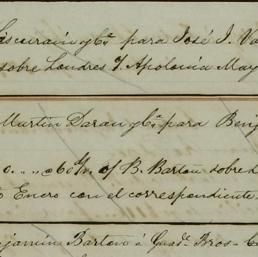 Liscurain y Cª para José J. Va
sobre Londres J. Apolonia May
Martin Daran y Cª para Benj
o.... @ 60 d/v. of B. Barton sobre d
Enero con el correspondiente
njamin Barton á Guadª Bros-C